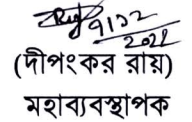 (দীপংকর রায়)
মহাব্যবস্থাপক